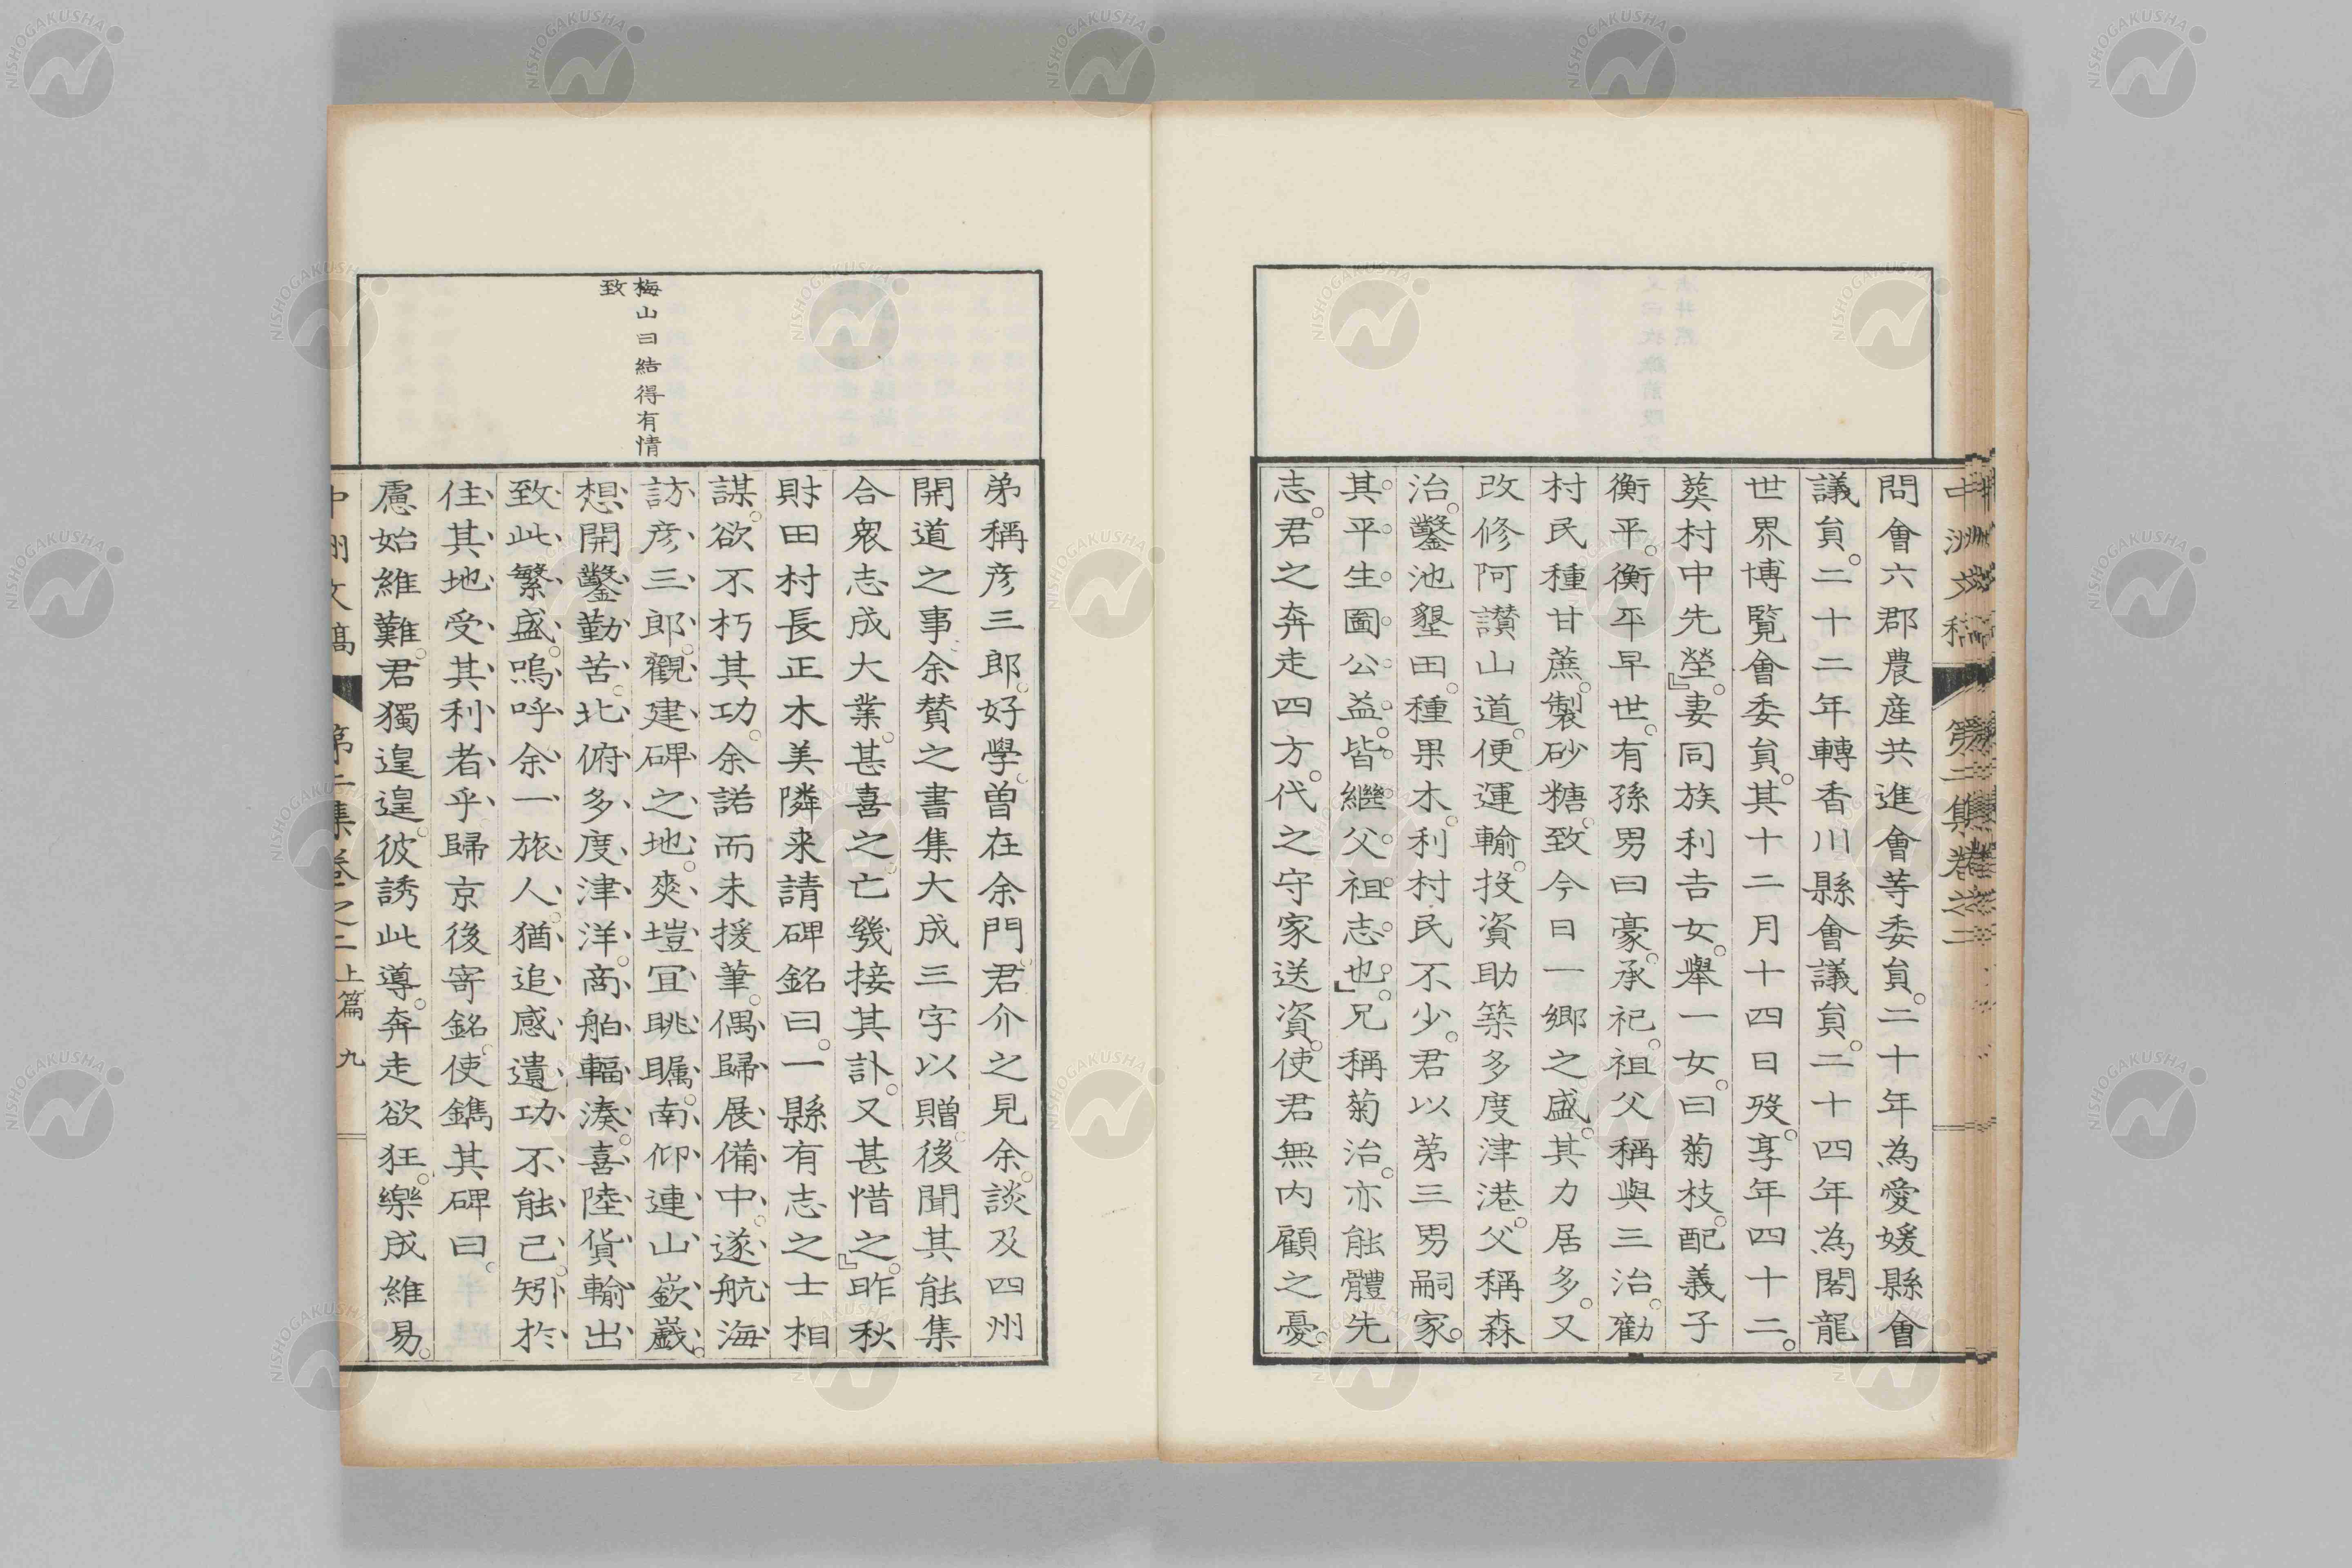 問會六郡農産共進會等委員。二十年為愛媛縣會
議員。二十二年轉香川縣會議員。二十四年為閣龍
世界博覽會委員。其十二月十四日歿。享年四十二。
葬村中先塋。』妻同族利吉女。舉一女。曰菊枝。配義子
衡平。衡平早世。有孫男曰豪。承祀。祖父稱與三治。勸
村民種甘蔗。製砂糖。致今日一鄉之盛。其力居多。又
改修阿讃山道。便運輸。投資助築多度津港。父稱森
治。鑿池墾田。種果木。利村民不少。君以第三男嗣家。
其平生圖公益。皆繼父祖志也。』兄稱菊治。亦能體先
志。君之奔走四方。代之守家送資。使君無內顧之憂。
弟稱彦三郎。好學。曾在余門。君介之見余。談及四州
開道之事。余賛之。書集大成三字以贈。後聞其能集
合衆志成大業。甚喜之。亡幾接其訃。又甚惜之。』昨秋
財田村長正木美隣来請碑銘曰。一縣有志之士相
謀。欲不朽其功。余諾而未援筆。偶歸展備中。遂航海
訪彦三郎。觀建碑之地。爽塏宜眺矚。南仰連山嶔巖。
想開鑿勤苦。北俯多度津洋。商舶輻湊。喜陸貨輸出
致此繁盛。嗚呼余一旅人。猶追感遺功不能已。矧於
住其地受其利者乎。歸京後寄銘。使鐫其碑曰。
慮始維難。君獨遑遑。彼誘此導。奔走欲狂。樂成維易。
梅山曰結得有情
致
中洲文稿 第二集卷之二 上篇 九
中洲文稿 第二集卷之二
NISHOGAKUSHA